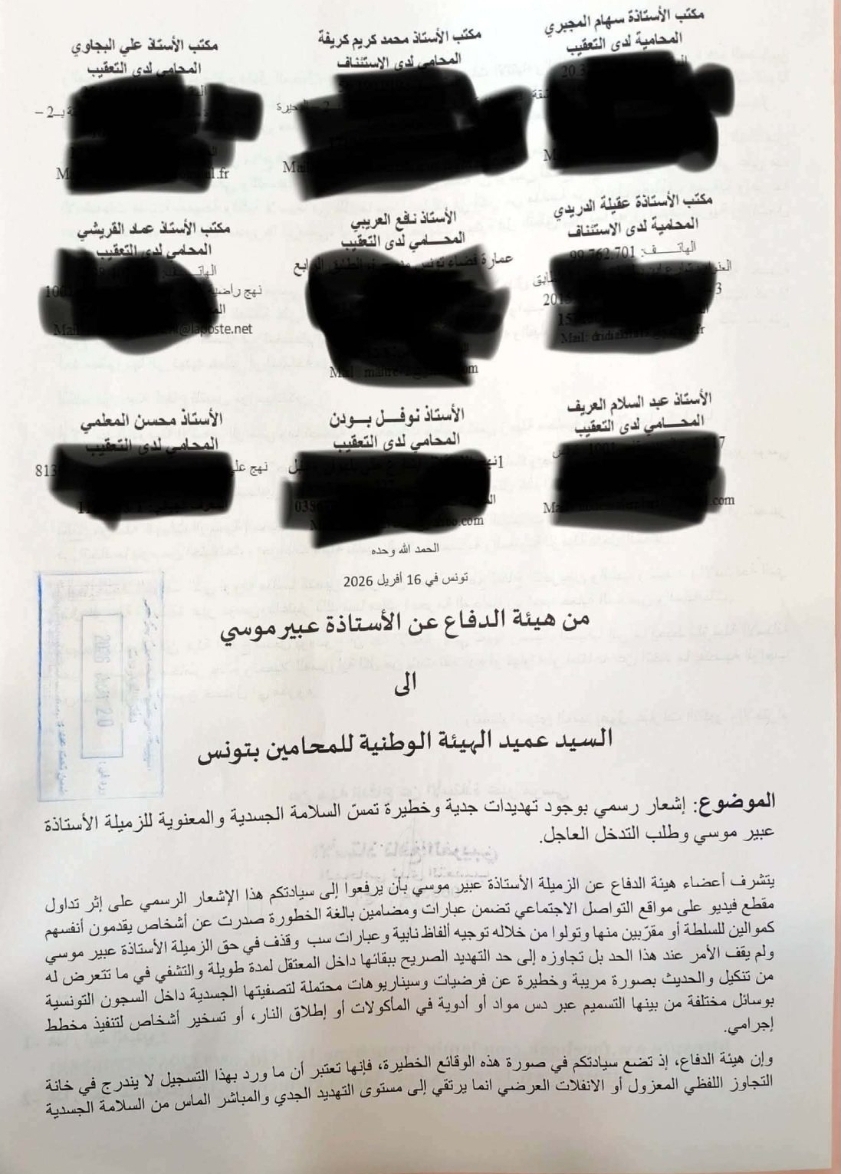 مكتب الأستاذة سهام المجبري
المحامية لدى التعقيب
مكتب الأستاذ محمد كريم كريفة
المحامي لدى الاستئناف
مكتب الأستاذ علي البجاوي
المحامي لدى التعقيب
مكتب الأستاذة عقيلة الدريدي
المحامية لدى الاستئناف
الأستاذ نافع العريبي
المحـــامي لدى التعقيب
مكتب الأستاذ عماد القريشي
المحامي لدى التعقيب
الأستاذ عبد السلام العريف
المحـــامي لدى التعقيب
الأستاذ نوفــل بــودن
المحامي لدى التعقيب
الأستاذ محسن المعلمي
المحامي لدى التعقيب
الحمد الله وحده
تونس في 16 أفريل 2026
من هيئة الدفاع عن الأستاذة عبير موسي
الى
السيد عميد الهيئة الوطنية للمحامين بتونس
الموضوع: إشعار رسمي بوجود تهديدات جدية وخطيرة تمسّ السلامة الجسدية والمعنوية للزميلة الأستاذة
عبير موسي وطلب التدخل العاجل.
يتشرف أعضاء هيئة الدفاع عن الزميلة الأستاذة عبير موسي بأن يرفعوا إلى سيادتكم هذا الإشعار الرسمي على إثر تداول
مقطع فيديو على مواقع التواصل الاجتماعي تضمن عبارات ومضامين بالغة الخطورة صدرت عن أشخاص يقدمون أنفسهم
كموالين للسلطة أو مقرّبين منها وتولوا من خلاله توجيه ألفاظ نابية وعبارات سب وقذف في حق الزميلة الأستاذة عبير موسي
ولم يقف الأمر عند هذا الحد بل تجاوزه إلى حد التهديد الصريح ببقائها داخل المعتقل لمدة طويلة والتشفي في ما تتعرض له
من تنكيل والحديث بصورة مريبة وخطيرة عن فرضيات وسيناريوهات محتملة لتصفيتها الجسدية داخل السجون التونسية
بوسائل مختلفة من بينها التسميم عبر دس مواد أو أدوية في المأكولات أو إطلاق النار، أو تسخير أشخاص لتنفيذ مخطط
إجرامي.
وإن هيئة الدفاع، إذ تضع سيادتكم في صورة هذه الوقائع الخطيرة، فإنها تعتبر أن ما ورد بهذا التسجيل لا يندرج في خانة
التجاوز اللفظي المعزول أو الانفلات العرضي انما يرتقي إلى مستوى التهديد الجدي والمباشر الماس من السلامة الجسدية